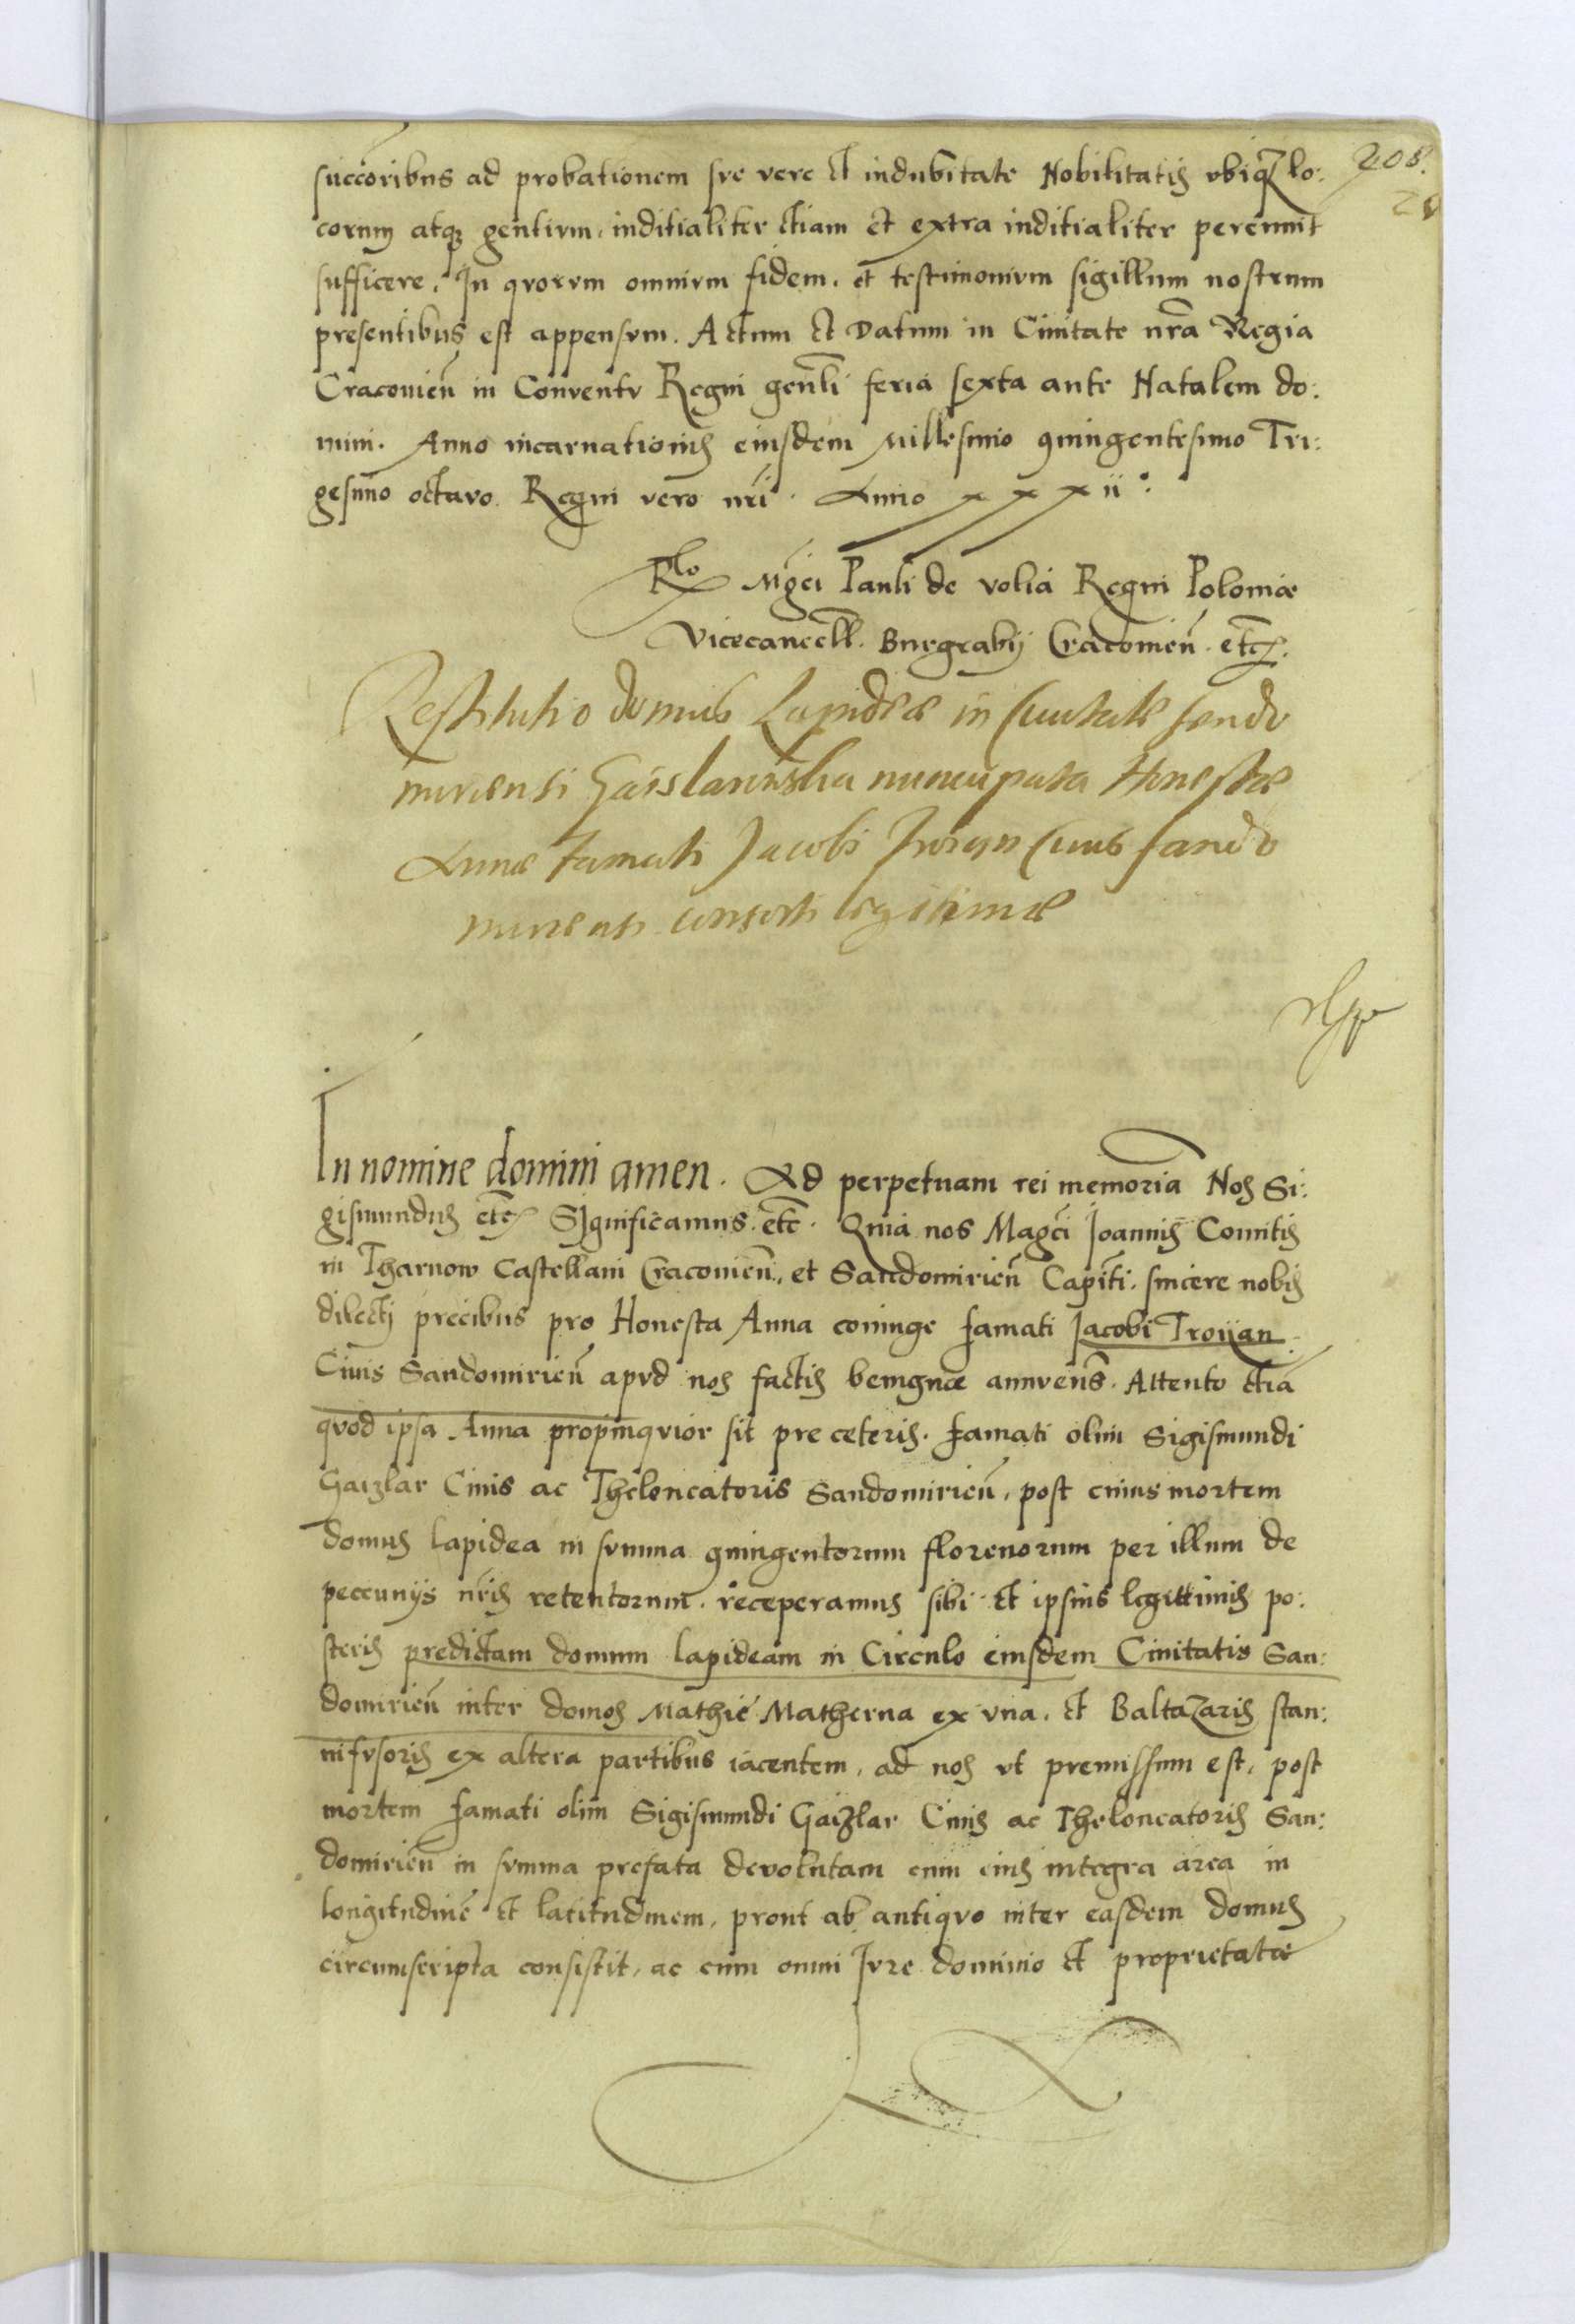 208.
succõribus ad probationem sve vere et indubitate Nobilitatis vbiq lo:
corum atq gentivm, iuditialiter etiam et extra iuditialiter perennit
sufficere. In qvorvm omnivm fidem, et testimonivm sigillum nostrum
presentibus est appensvm. Actum et Datum in Ciuitate nrã Regia
Cracovieñ in Conventv Regni geñli feria sexta ante Natalem do:
mini. Anno incarnationis eiusdem Millesimo quingentesimo Tri:
gesimo octavo Regni vero nrĩ. Anno xxxii:
Rlo Mgci Pauli de volia Regni Poloniæ
Vicecancell. Burgrabij Cracovieñ. etc.
Restitutio domus Lapideæ in Ciuitate Sendo
miriensi Gaislarinska nuncupata Honestæ
Annæ famati Jacobi Troian Ciuis sando
miriensis consorti legitimæ
In nomine domini amen. Ad perpetuam rei memoria Nos Si:
gismundus etc Significamus. etc. Quia nos Magci Joannis Comitis
in Tharnow Castellani Cracovieñ, et Sandomirieñ Capiti. sincere nobis
dilecti precibus pro Honesta Anna coniuge famati Jacobi Troijan
Ciuis Sandomirieñ apvd nos factis benignæ annvens. Attento etiã
qvod ipsa Anna propinqvior sit pre ceteris. famati olim Sigismundi
Gaizlar Ciuis ac Theloneatoris Sandomirieñ, post cuius mortem
domus lapidea in svmma quingentorum florenorum per illum de
peccunijs nris retentorum. receperamus sibi et ipsius legittimis po:
steris predictam domum lapideam in Circulo eiusdem Ciuitatis San:
domirieñ inter domos Mathie Matherna ex vna, et Baltazaris stan:
nifvsoris ex altera partibus iacentem, ad nos vt premissum est, post
mortem famati olim Sigismundi Gaizlar Ciuis ac Theloneatoris San:
domirieñ in svmma prefata devolutam cum eius integra area in
longitudinẽ et latitudinem, prout ab antiqvo inter easdem domus
circumscripta consistit, ac cum omni Jvre dominio et proprietate